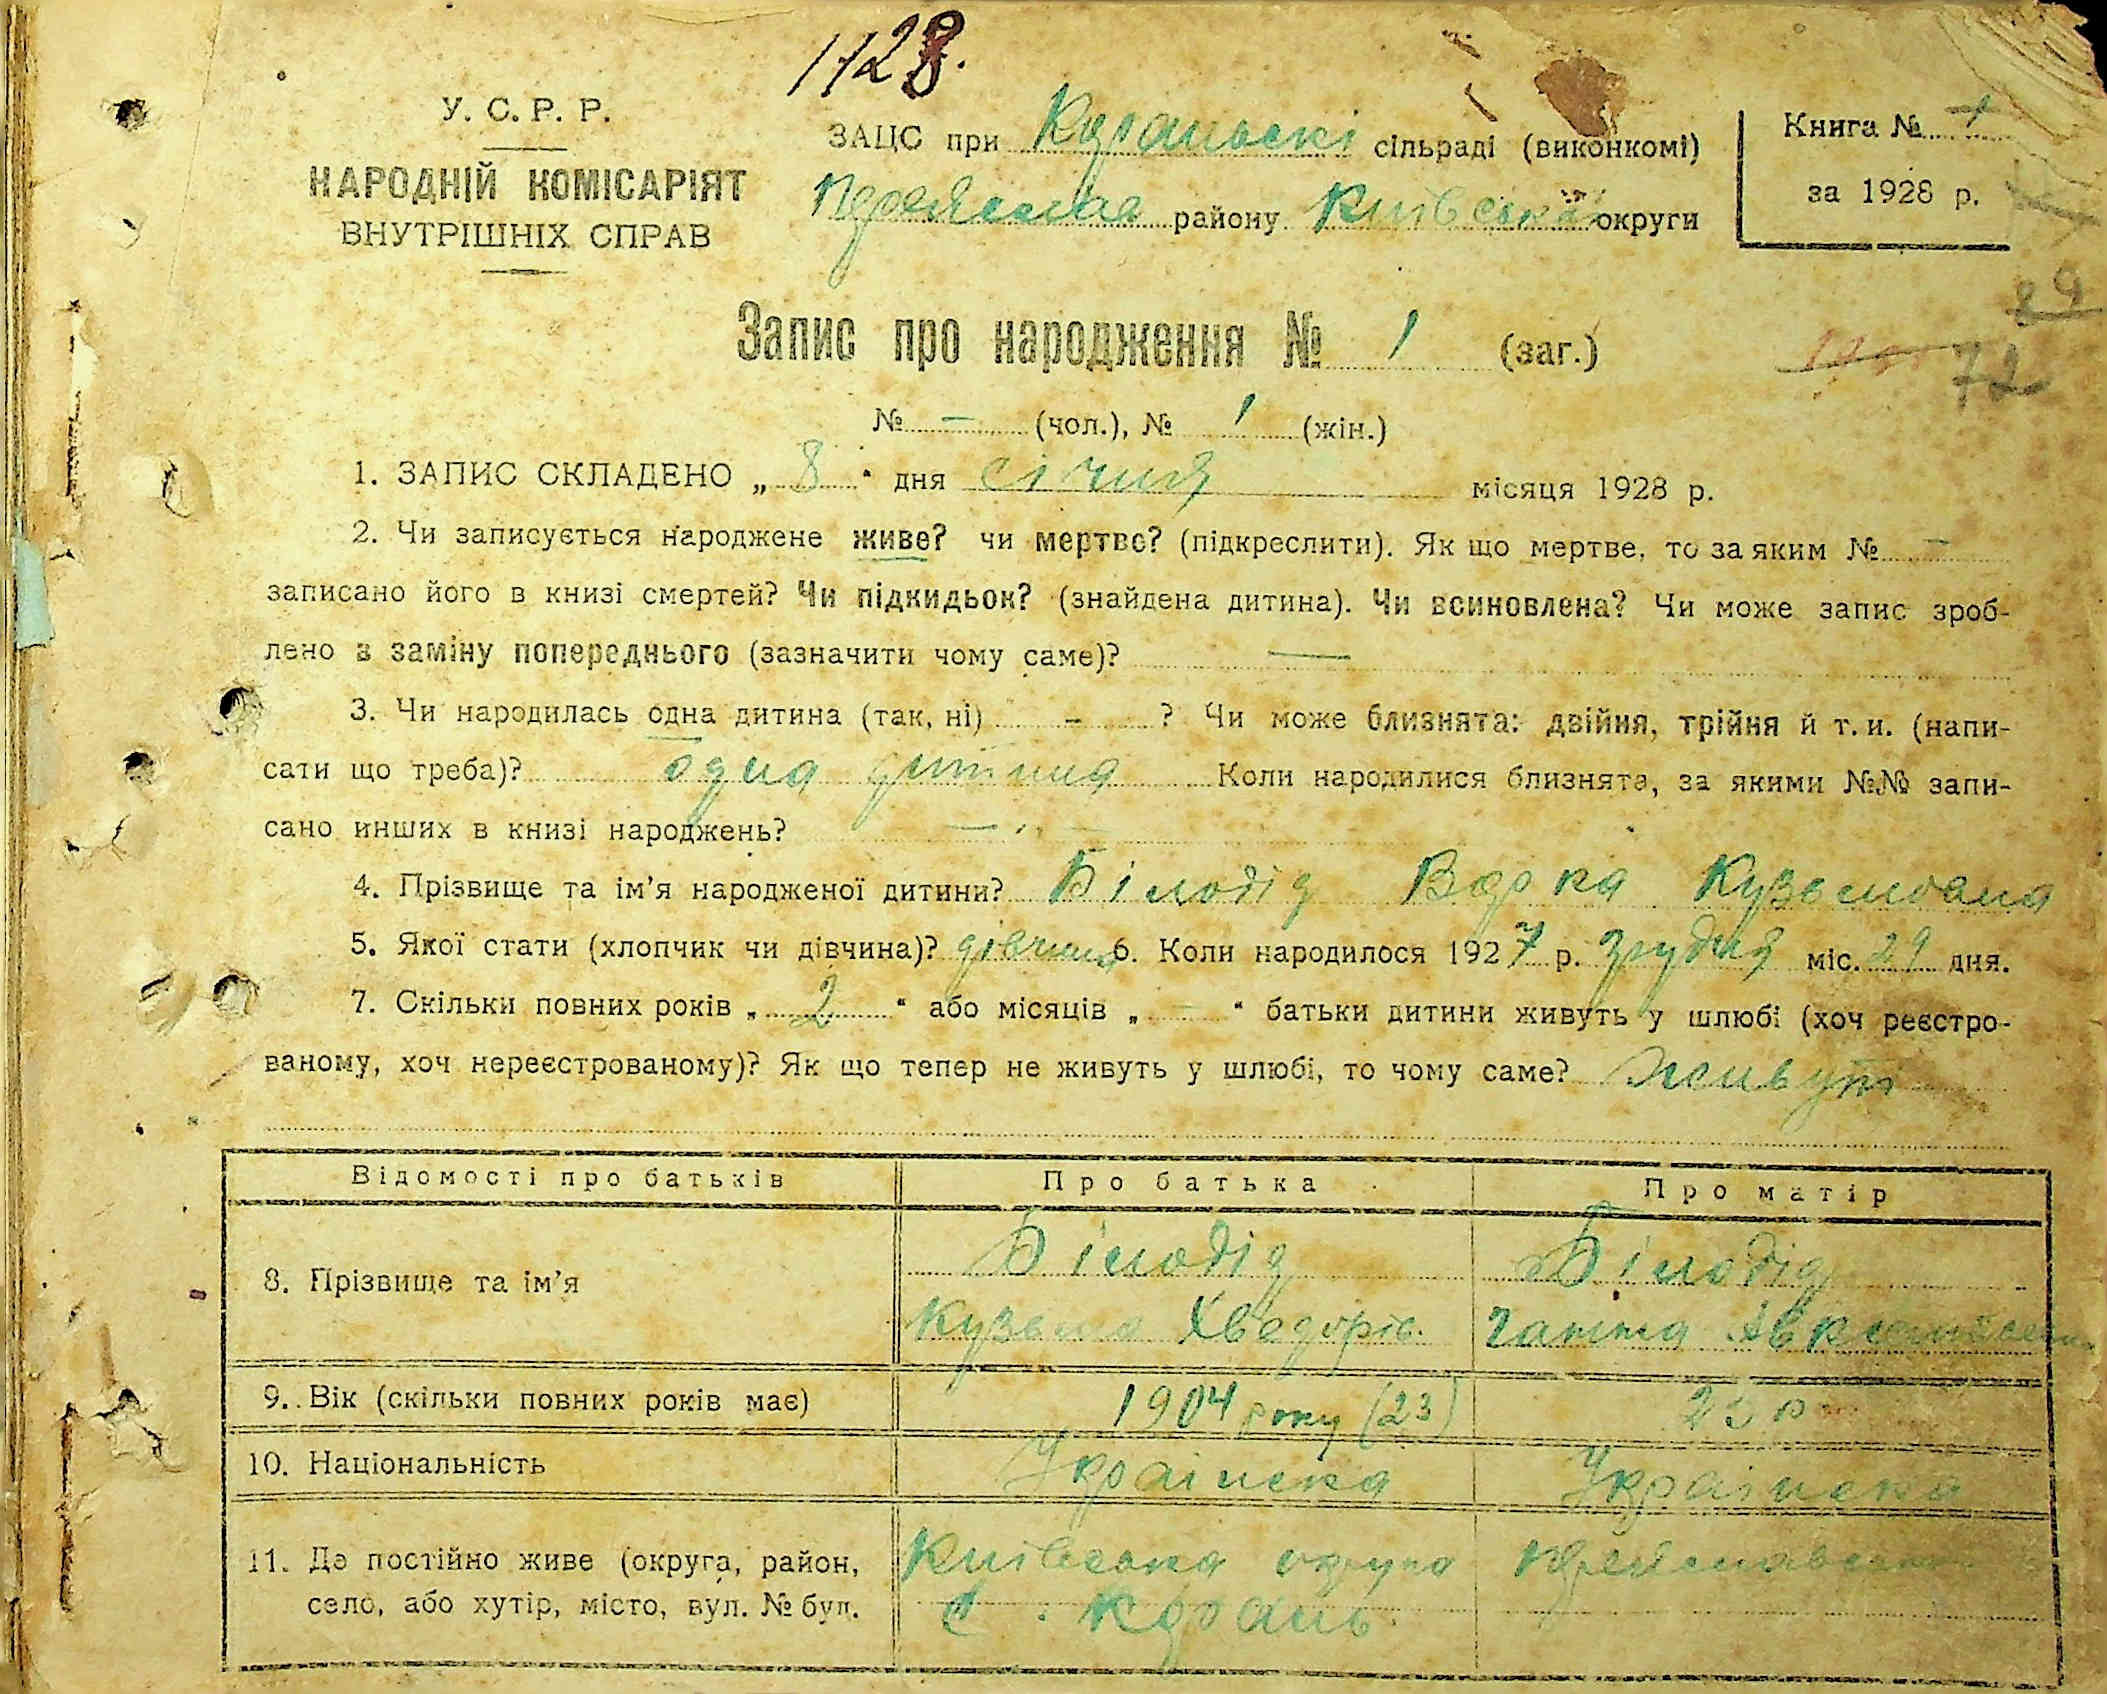 1128.
У. С. Р. Р.
НАРОДНІЙ КОМІСАРІЯТ
ВНУТРІШНІХ СПРАВ
ЗАЦС при сільраді (виконкомі)
району Київська округи
Книга № 1
за 1928 р.
29
72
Запис про народження № 1 (заг.)
№ — (чол.), № 1 (жін.)
1. ЗАПИС СКЛАДЕНО „ 8 " дня січня місяця 1928 р.
2. Чи записується народжене живе? чи мертве? (підкреслити). Як що мертве, то за яким № —
записано його в книзі смертей? Чи підкидьок? (знайдена дитина). Чи всиновлена? Чи може запис зроб-
лено в заміну попереднього (зазначити чому саме)? —
3. Чи народилась одна дитина (так, ні) - ? Чи може близнята: двійня, трійня й т. и. (напи-
сати що треба)? одна дитина Коли народилися близнята, за якими №№ запи-
сано инших в книзі народжень? —
4. Прізвище та ім'я народженої дитини? Білодід Варка Кузьмовна
5. Якої стати (хлопчик чи дівчина)? дівчина 6. Коли народилося 1927 р. грудня міс. 29 дня.
7. Скільки повних років „ 2 " або місяців „ — " батьки дитини живуть у шлюбі (хоч реєстро-
ваному, хоч нереєстрованому)? Як що тепер не живуть у шлюбі, то чому саме? Живут
Відомості про батьків Про батька Про матір
8. Прізвище та ім'я Білодід Білодід
Кузьма Хведорів. Ганна
9. Вік (скільки повних років має) 1904 року (23)
10. Національність Українска Українска
11. Де постійно живе (округа, район, Київська округа
село, або хутір, місто, вул. № буд. с. Карань